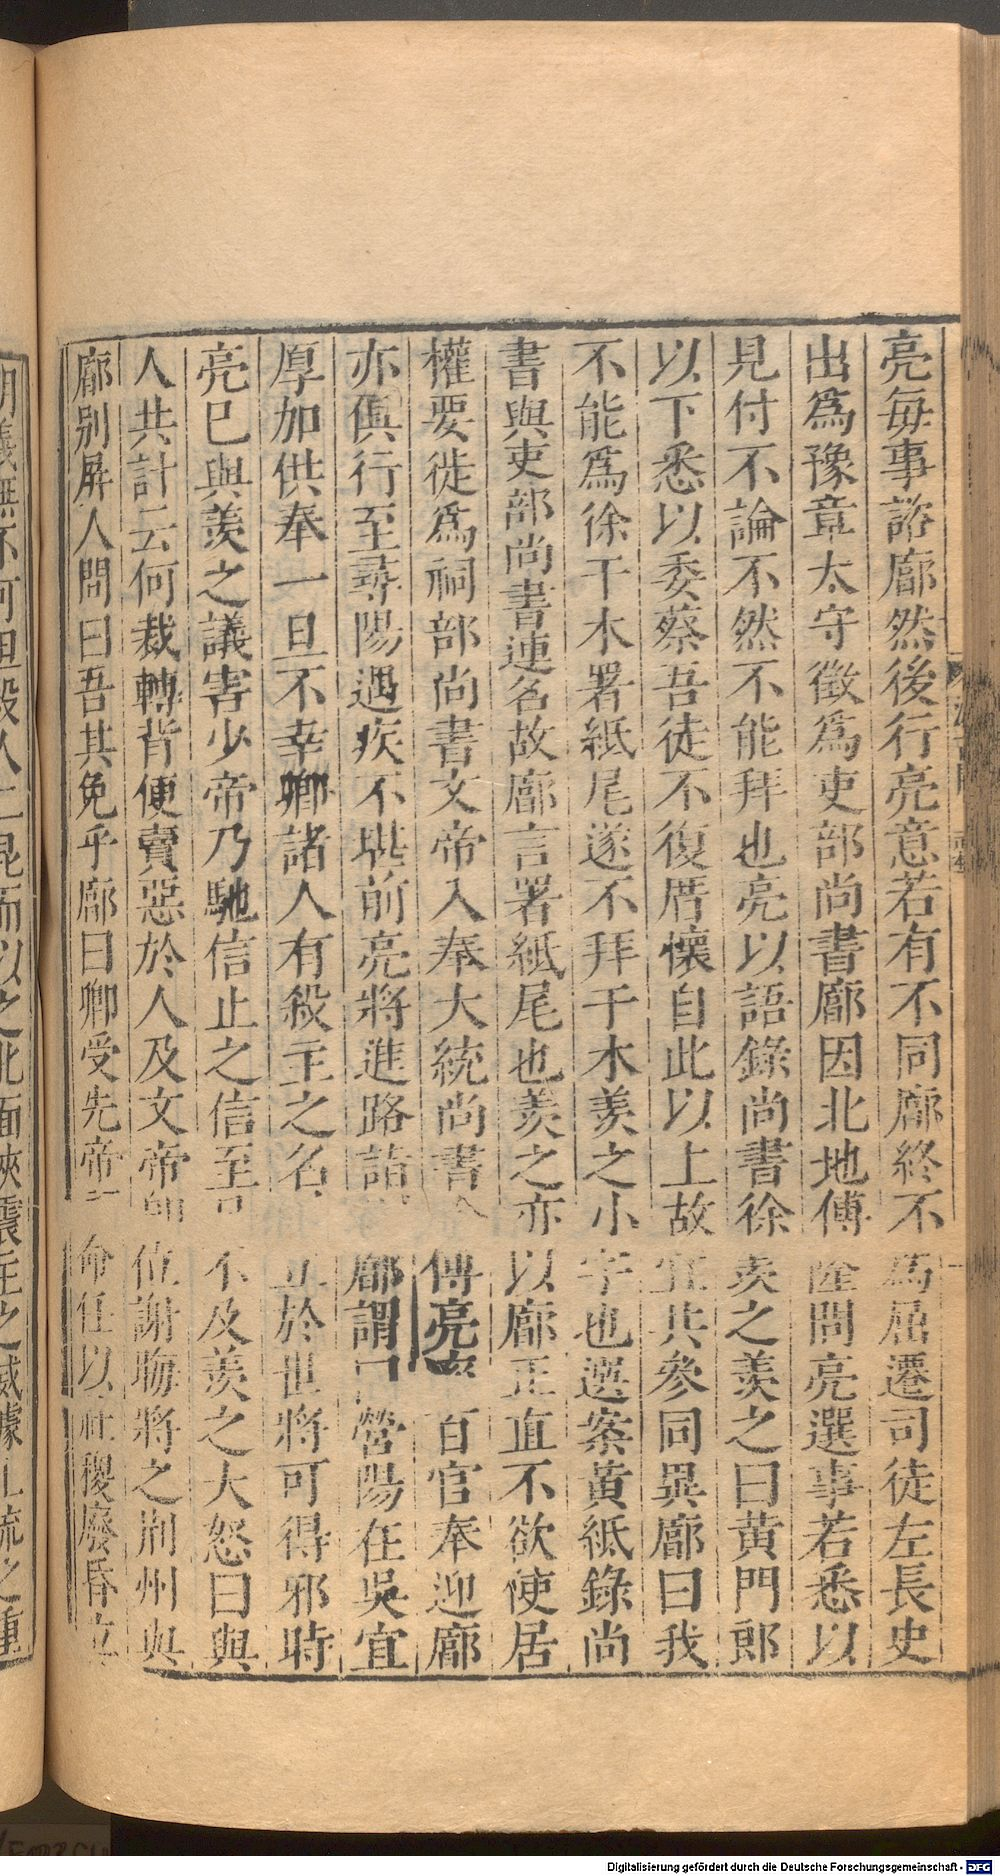 亮每事諮廓然後行亮意若有不同廓終不為屈遷司徒左長史
出爲豫章太守徵爲吏部尚書廓因北地傅隆問亮選事若悉以
見付不論不然不能拜也亮以語錄尚書徐羨之羨之曰黃門郎
以下悉以委蔡吾徒不復厝懷自此以上故宜共參同異廓曰我
不能爲徐干木署紙尾遂不拜干木羨之小字也選案黃紙錄尚
書與吏部尚書連名故廓言署紙尾也羨之亦以廓正直不欲使居
權要徙爲祠部尚書文帝入奉大統尚書令傅亮率百官奉迎廓
亦俱行至尋陽遇疾不堪前亮將進路詣廓別廓謂曰營陽在吳宜
厚加供奉一旦不幸卿諸人有殺主之名立於世將可得邪時
亮已與羨之議害少帝乃馳信止之信至已不及羨之大怒曰與
人共計云何裁轉背便賣惡於人及文帝即位謝晦將之荆州與
廓別屏人問曰吾其免乎廓曰卿受先帝顧命任以社稷廢昏立
明義無不可但殺人二昆而以之北面挾震主之威據上流之重
Digitalisierung gefördert durch die Deutsche Forschungsgemeinschaft - DFG